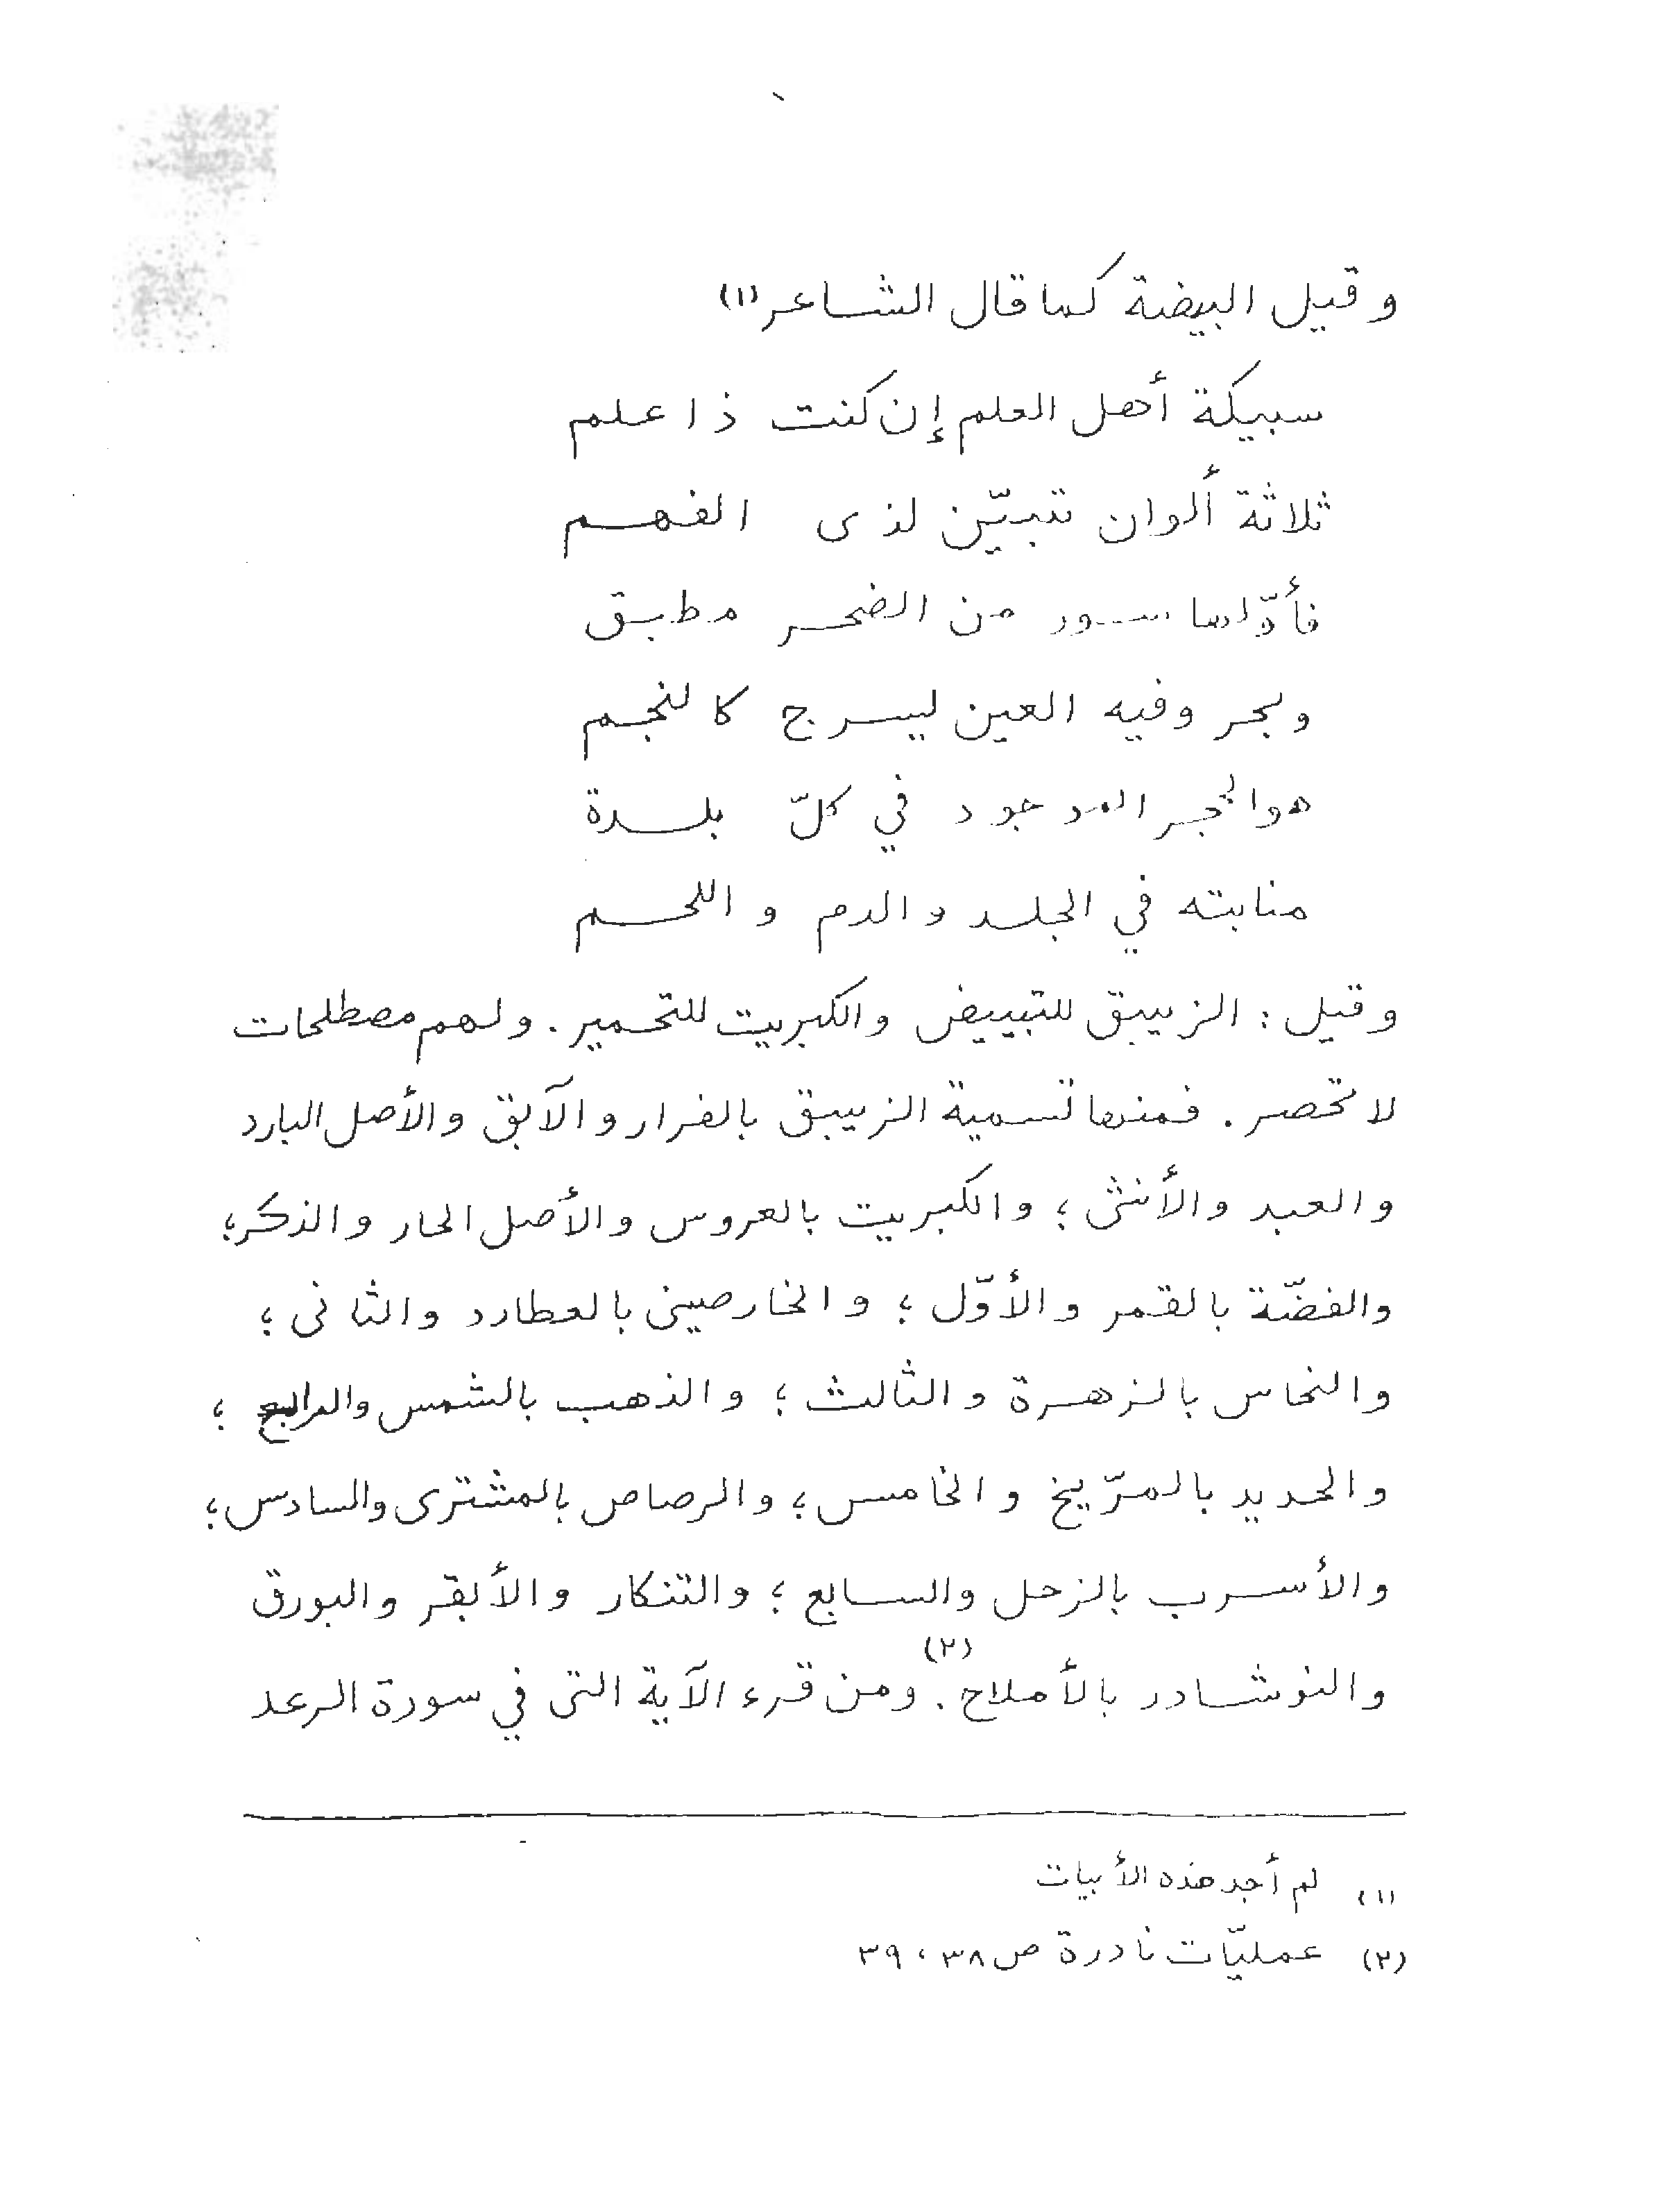 وقيل البيضة كما قال الشاعر (١)
سبيكة أهل العلم إن كنت ذا علم
ثلاثة ألوان تبيّن لذى الفهم
فأوّلها سور من الضحر مطبق
وبحر وفيه العين ليسرج كالنجم
هو الحجر الموجود في كلّ بلدة
منابته في الجلد والدم واللحم
وقيل : الزيبق للتبييض والكبريت للتحمير . ولهم مصطلحات
لا تحصر . فمنها تسمية الزيبق بالفرار والآبق والأصل البارد
والعبد والأنثى ؛ والكبريت بالعروس والأصل الحار والذكر ؛
والفضّة بالقمر والأوّل ؛ والخارصينى بالعطارد والثانى ؛
والنحاس بالزهرة والثالث ؛ والذهب بالشمس والرابع ؛
والحديد بالمرّيخ والخامس ؛ والرصاص بالمشترى والسادس ؛
والأسرب بالزحل والسابع ؛ والتنكار والأبقر والبورق
والنوشادر بالأملاح (٢) . ومن قرء الآية التى في سورة الرعد
(١) لم أجد هذه الأبيات
(٢) عمليّات نادرة ص ٣٨ ، ٣٩